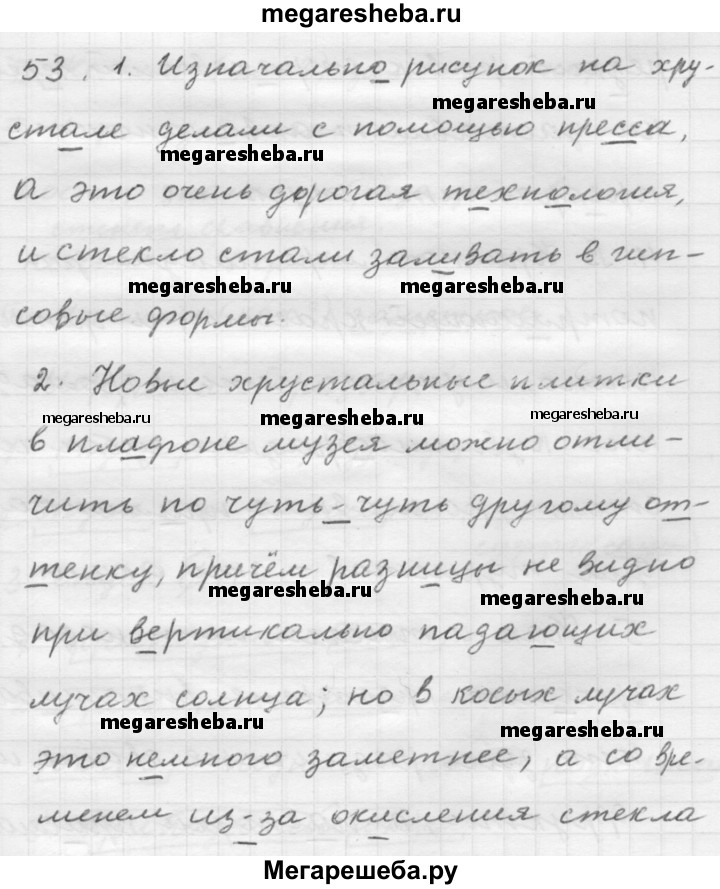 megaresheba.ru
53. 1. Изначально рисунок на хру-
megaresheba.ru
стале делали с помощью пресса,
megaresheba.ru
а это очень дорогая технология,
и стекло стали заливать в гип-
megaresheba.ru megaresheba.ru
совые формы.
2. Новые хрустальные плитки
megaresheba.ru megaresheba.ru megaresheba.ru
в плафоне музея можно отли-
чить по чуть-чуть другому от-
тенку, причём разницы не видно
megaresheba.ru megaresheba.ru
при вертикально падающих
лучах солнца; но в косых лучах
megaresheba.ru megaresheba.ru
это немного заметнее, а со вре-
менем из-за окисления стекла
Мегарешеба.ру